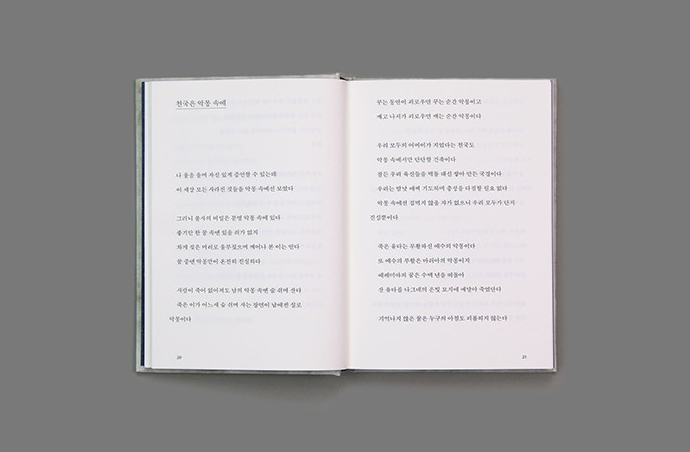 천국은 악몽 속에
나 꿈을 들어 자신 있게 증언할 수 있는데
이 세상 모든 사라진 것들을 악몽 속에선 보았다
그러니 불사의 비밀은 분명 악몽 속에 있다
좋기만 한 꿈 속엔 있을 리가 없지
차게 젖은 머리로 울부짖으며 깨어나 본 이는 안다
꿈 중엔 악몽만이 온전히 진실하다
사람이 죽어 없어져도 남의 악몽 속엔 숨 쉬며 산다
죽은 이가 어느새 숨 쉬며 사는 장면이 남에겐 실로
악몽이다
20
꾸는 동안이 괴로우면 꾸는 순간 악몽이고
깨고 나서가 괴로우면 깨는 순간 악몽이다
우리 모두의 어버이가 지었다는 천국도
악몽 속에서만 단단할 건축이다
잠든 우리 육신들을 벽돌 대신 쌓아 만든 국경이다
우리는 밤낮 애써 기도하며 충성을 다짐할 필요 없다
악몽 속에선 겁먹지 않을 자가 없으니 우리 모두가 단지
진심뿐이다
죽은 유다는 부활하신 예수의 악몽이다
또 예수의 부활은 마리아의 악몽이지
예레미야의 꿈은 수백 년을 떠돌아
산 유다를 나그네의 은빛 묘지에 매달아 죽였단다
기억나지 않은 꿈은 누구의 아침도 괴롭히지 않는다
21